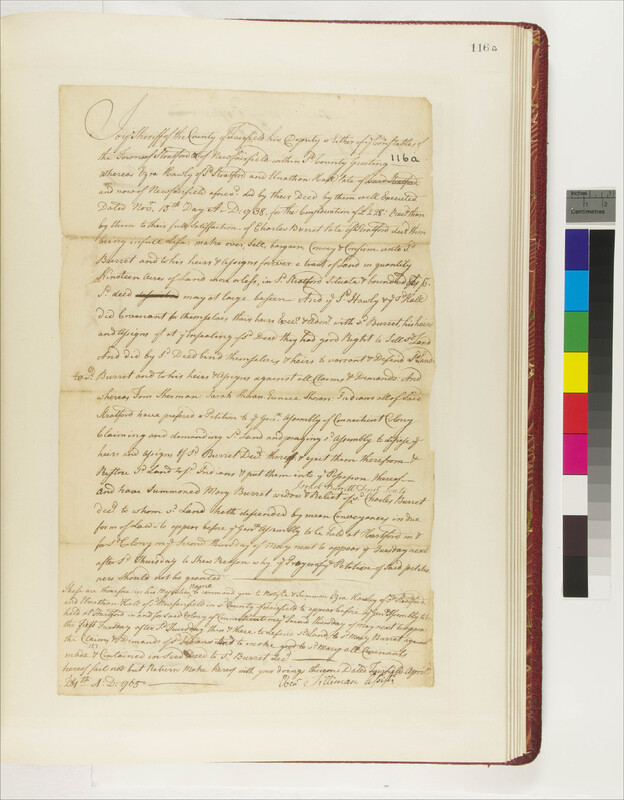 116a
To ye Sheriff of the County of Fairfield his Deputy or Either of ye Constables of
the Towns of Stratford & of Newfairfield within sd County Greeting
116a
Whereas Ezra Hawly of sd Stratford and Elnathan Hall late of said Stratford
and now of Newfairfield aforesd did by their Deed by them well Executed
Dated Novr. 13th Day A:D: 1738. for the Consideration of
by them to their full Satisfaction of Charles Burret late of Stratford decd then
being in full life make over, Sell, bargain Convey & Confirm unto sd
Burret and to his heirs & assigns forever a tract of Land in quantity
Nineteen Acres of Land more or less, in sd Stratford Scituate & bounded as by
sd deed may at large be seen. And ye sd Hawly & ye sd Hall
did Covenant for themselves their heirs Execrs & Admrs with sd Burret, his heirs
and assigns yt at ye Ensealing of sd Deed they had good Right to Sell sd Land
And did by sd Deed bind themselves & heirs to warrant & Defend sd Land
to sd Burret and to his heirs & assigns against all Claims & Demands. And
whereas Tom Sherman Sarah Eunice Indians all of said
Stratford have prefered a Petition to ye Genll Assembly of Connecticut Colony
Claiming and demanding sd Land and praying sd Assembly to ye
heirs and assigns of sd Burret Decd thereof & Eject them therefrom &
Restore sd Land to sd Indians & put them into ye Possession thereof
and have Summoned Mary Burret widow & Relict of sd Charles Burret
decd to whom sd Land hath descended by mean Conveyances in due
form of Law to appear before ye Genll Assembly to be held at Hartford in &
for sd Colony on ye Second Thursday of May next to appear ye Tuesday next
after sd Thursday to Shew Reason why ye Prayer of ye Petition of said petitio
ners should not be granted
These are therefore in his Majesties Name to command you to Notifie & Summon Ezra Hawly of sd Stratford
and Elnathan Hall of Newfairfield in sd County of Fairfield to appear before ye Genll Assembly to be
held at Hartford in and for said Colony of Connecticut on ye Second Thursday of May next to appear
the first Tuesday after sd Thursday then & there to defend sd Land to sd Mary Burret against
the Claims & Demands of sd Indians and to make good to sd Mary all Covenants
made & Contained in said Deed to sd Burret decd
hereof fail not but Return make hereof with your doings thereon Dated Fairfield April
A:D: 1765
Ebenr Silliman Assist